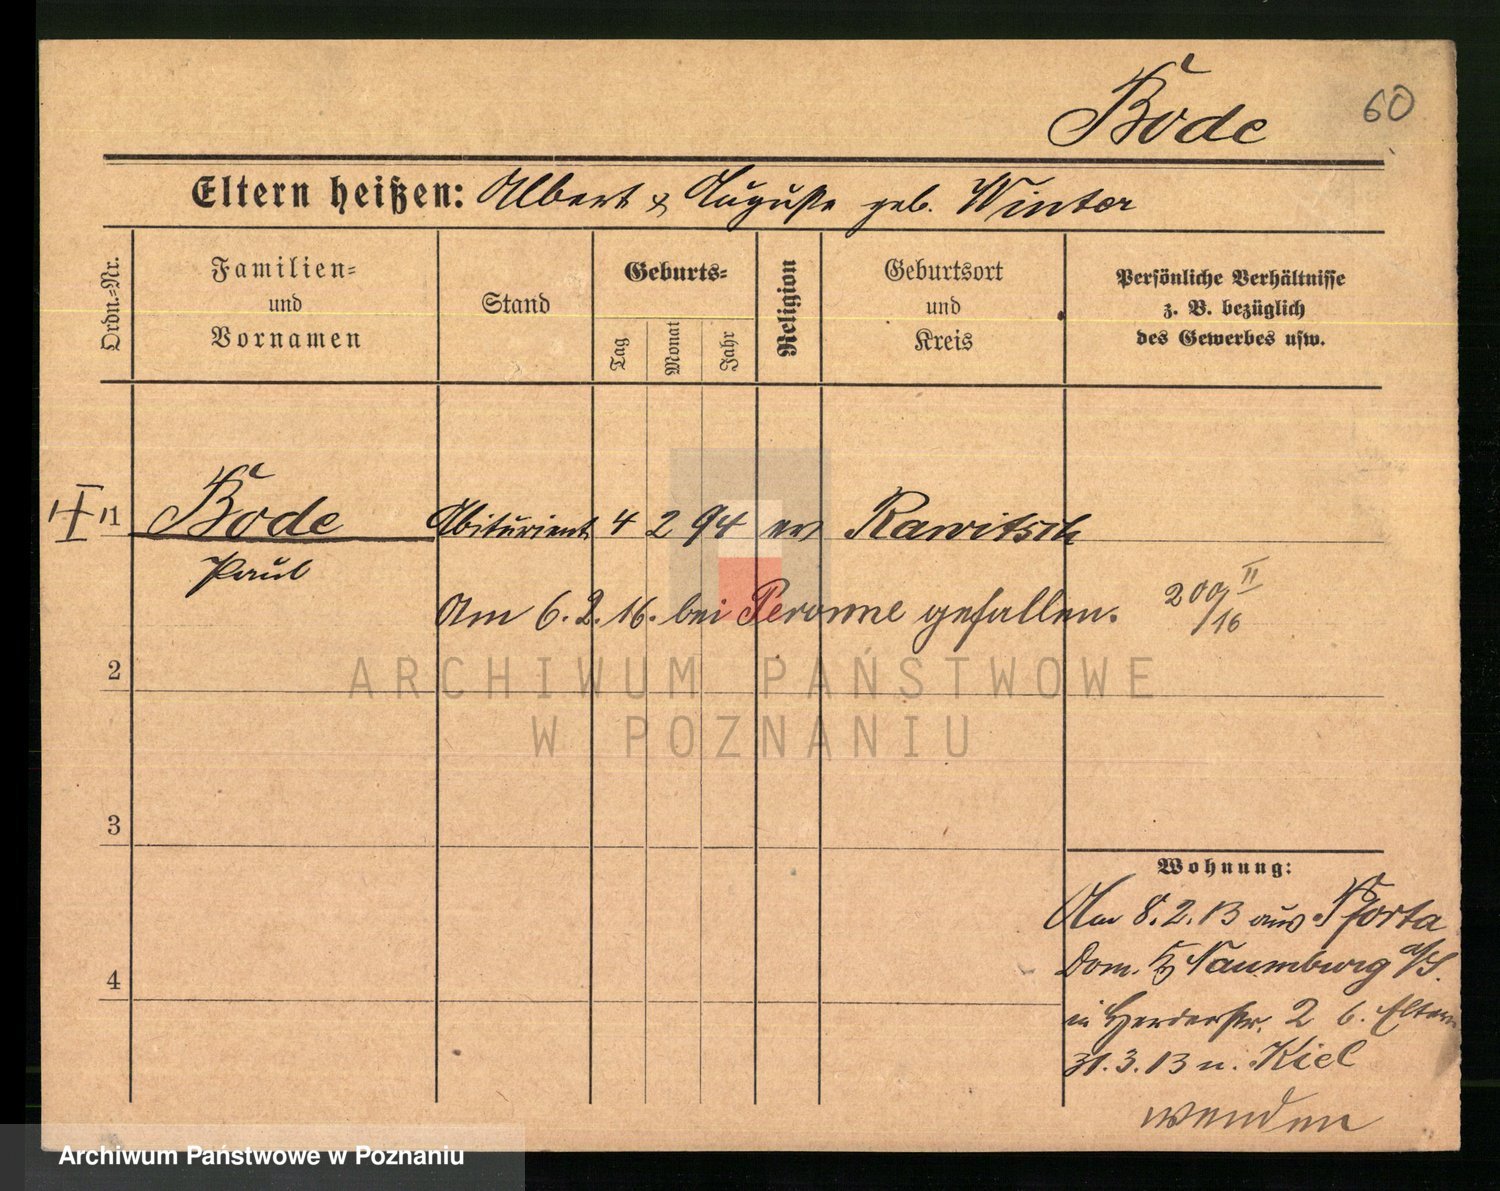 Bode
60
Eltern heißen: Albert & Auguste geb. Winter
Ordn.-Nr.
Familien= und Vornamen
Stand
Geburts=
Tag
Monat
Jahr
Religion
Geburtsort und Kreis
Persönliche Verhältnisse
z. B. bezüglich
des Gewerbes usw.
1 Bode Abiturient 4 2 94 ev Rawitsch
Paul
Am 6. 2. 16. bei Peronne gefallen. 200 II/16
2
ARCHIWUM PAŃSTWOWE
W POZNANIU
3
Wohnung:
Am 8. 2. 13 aus Pforta
Dom. Naumburg a/S.
4
in Herderstr. 2 b. Eltern
31. 3. 13 n. Kiel
wenden
Archiwum Państwowe w Poznaniu